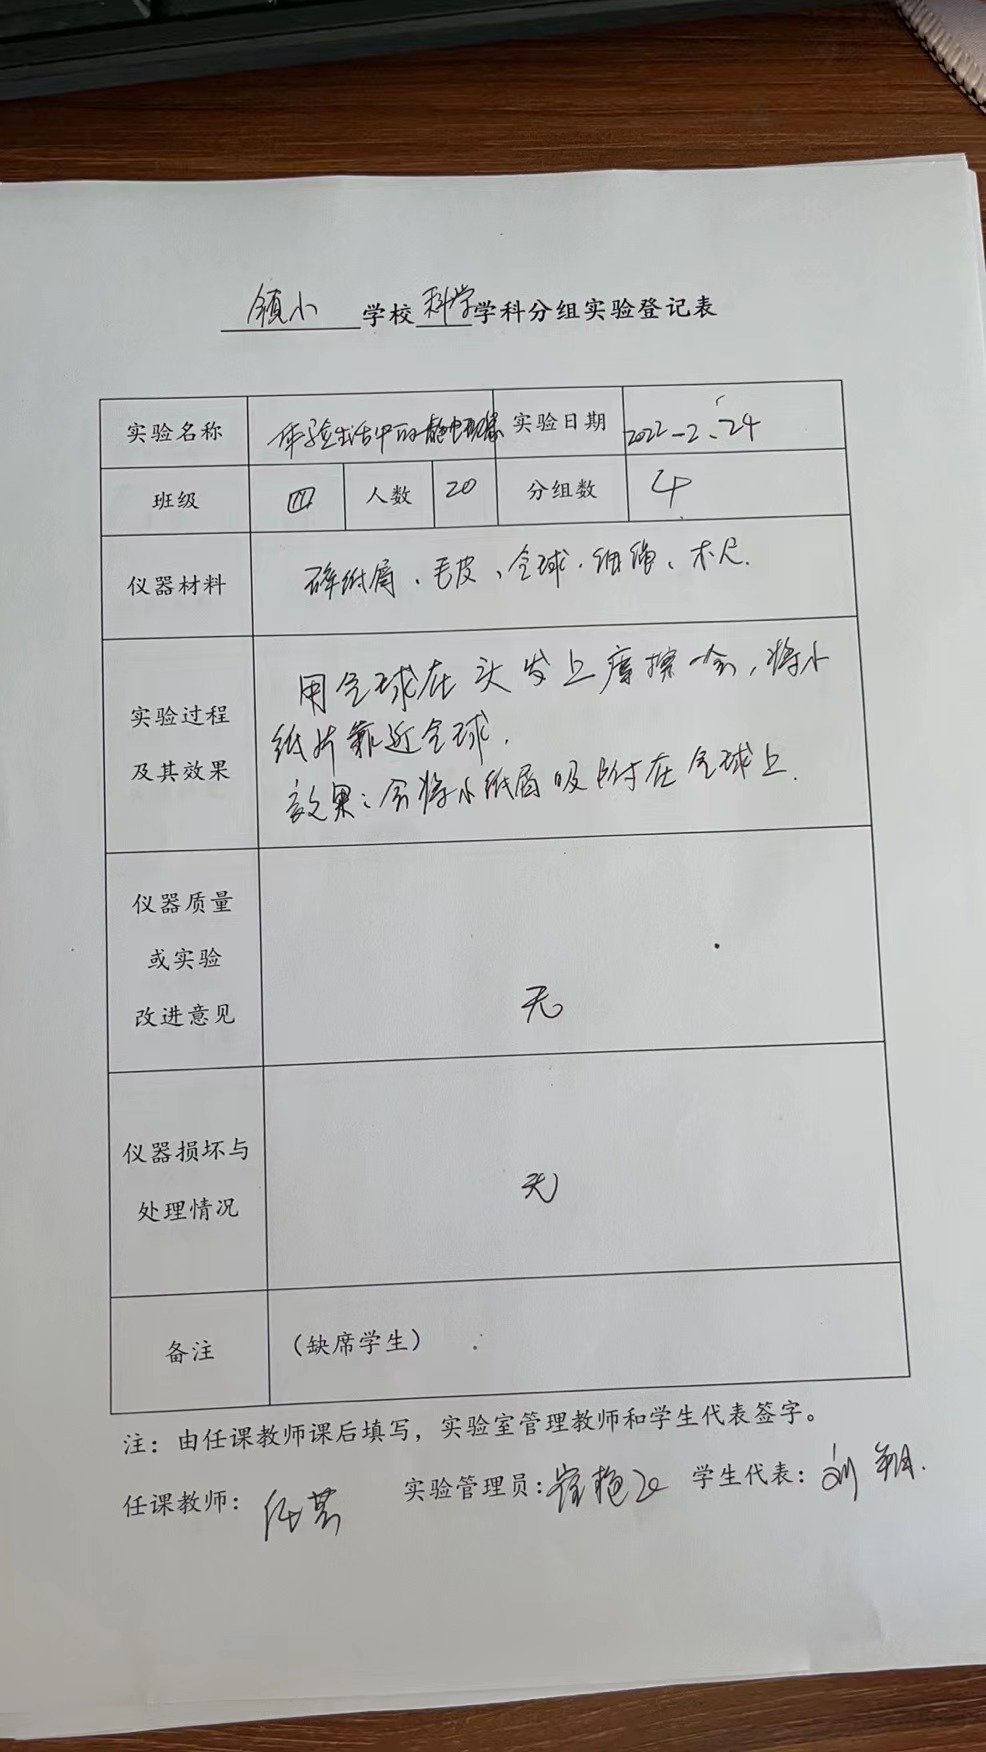 镇小 学校 科学 学科分组实验登记表
实验名称 体验生活中的静电现象 实验日期 2022-2、24
班级 四 人数 20 分组数 4
仪器材料 碎纸屑、毛皮、气球、细绳、木尺.
用气球在头发上摩擦一会,将小
实验过程 纸片靠近气球.
及其效果 效果:会将小纸屑吸附在气球上.
仪器质量
或实验
改进意见 无
仪器损坏与
处理情况 无
备注 (缺席学生)
注:由任课教师课后填写,实验室管理教师和学生代表签字。
任课教师: 实验管理员: 学生代表:刘